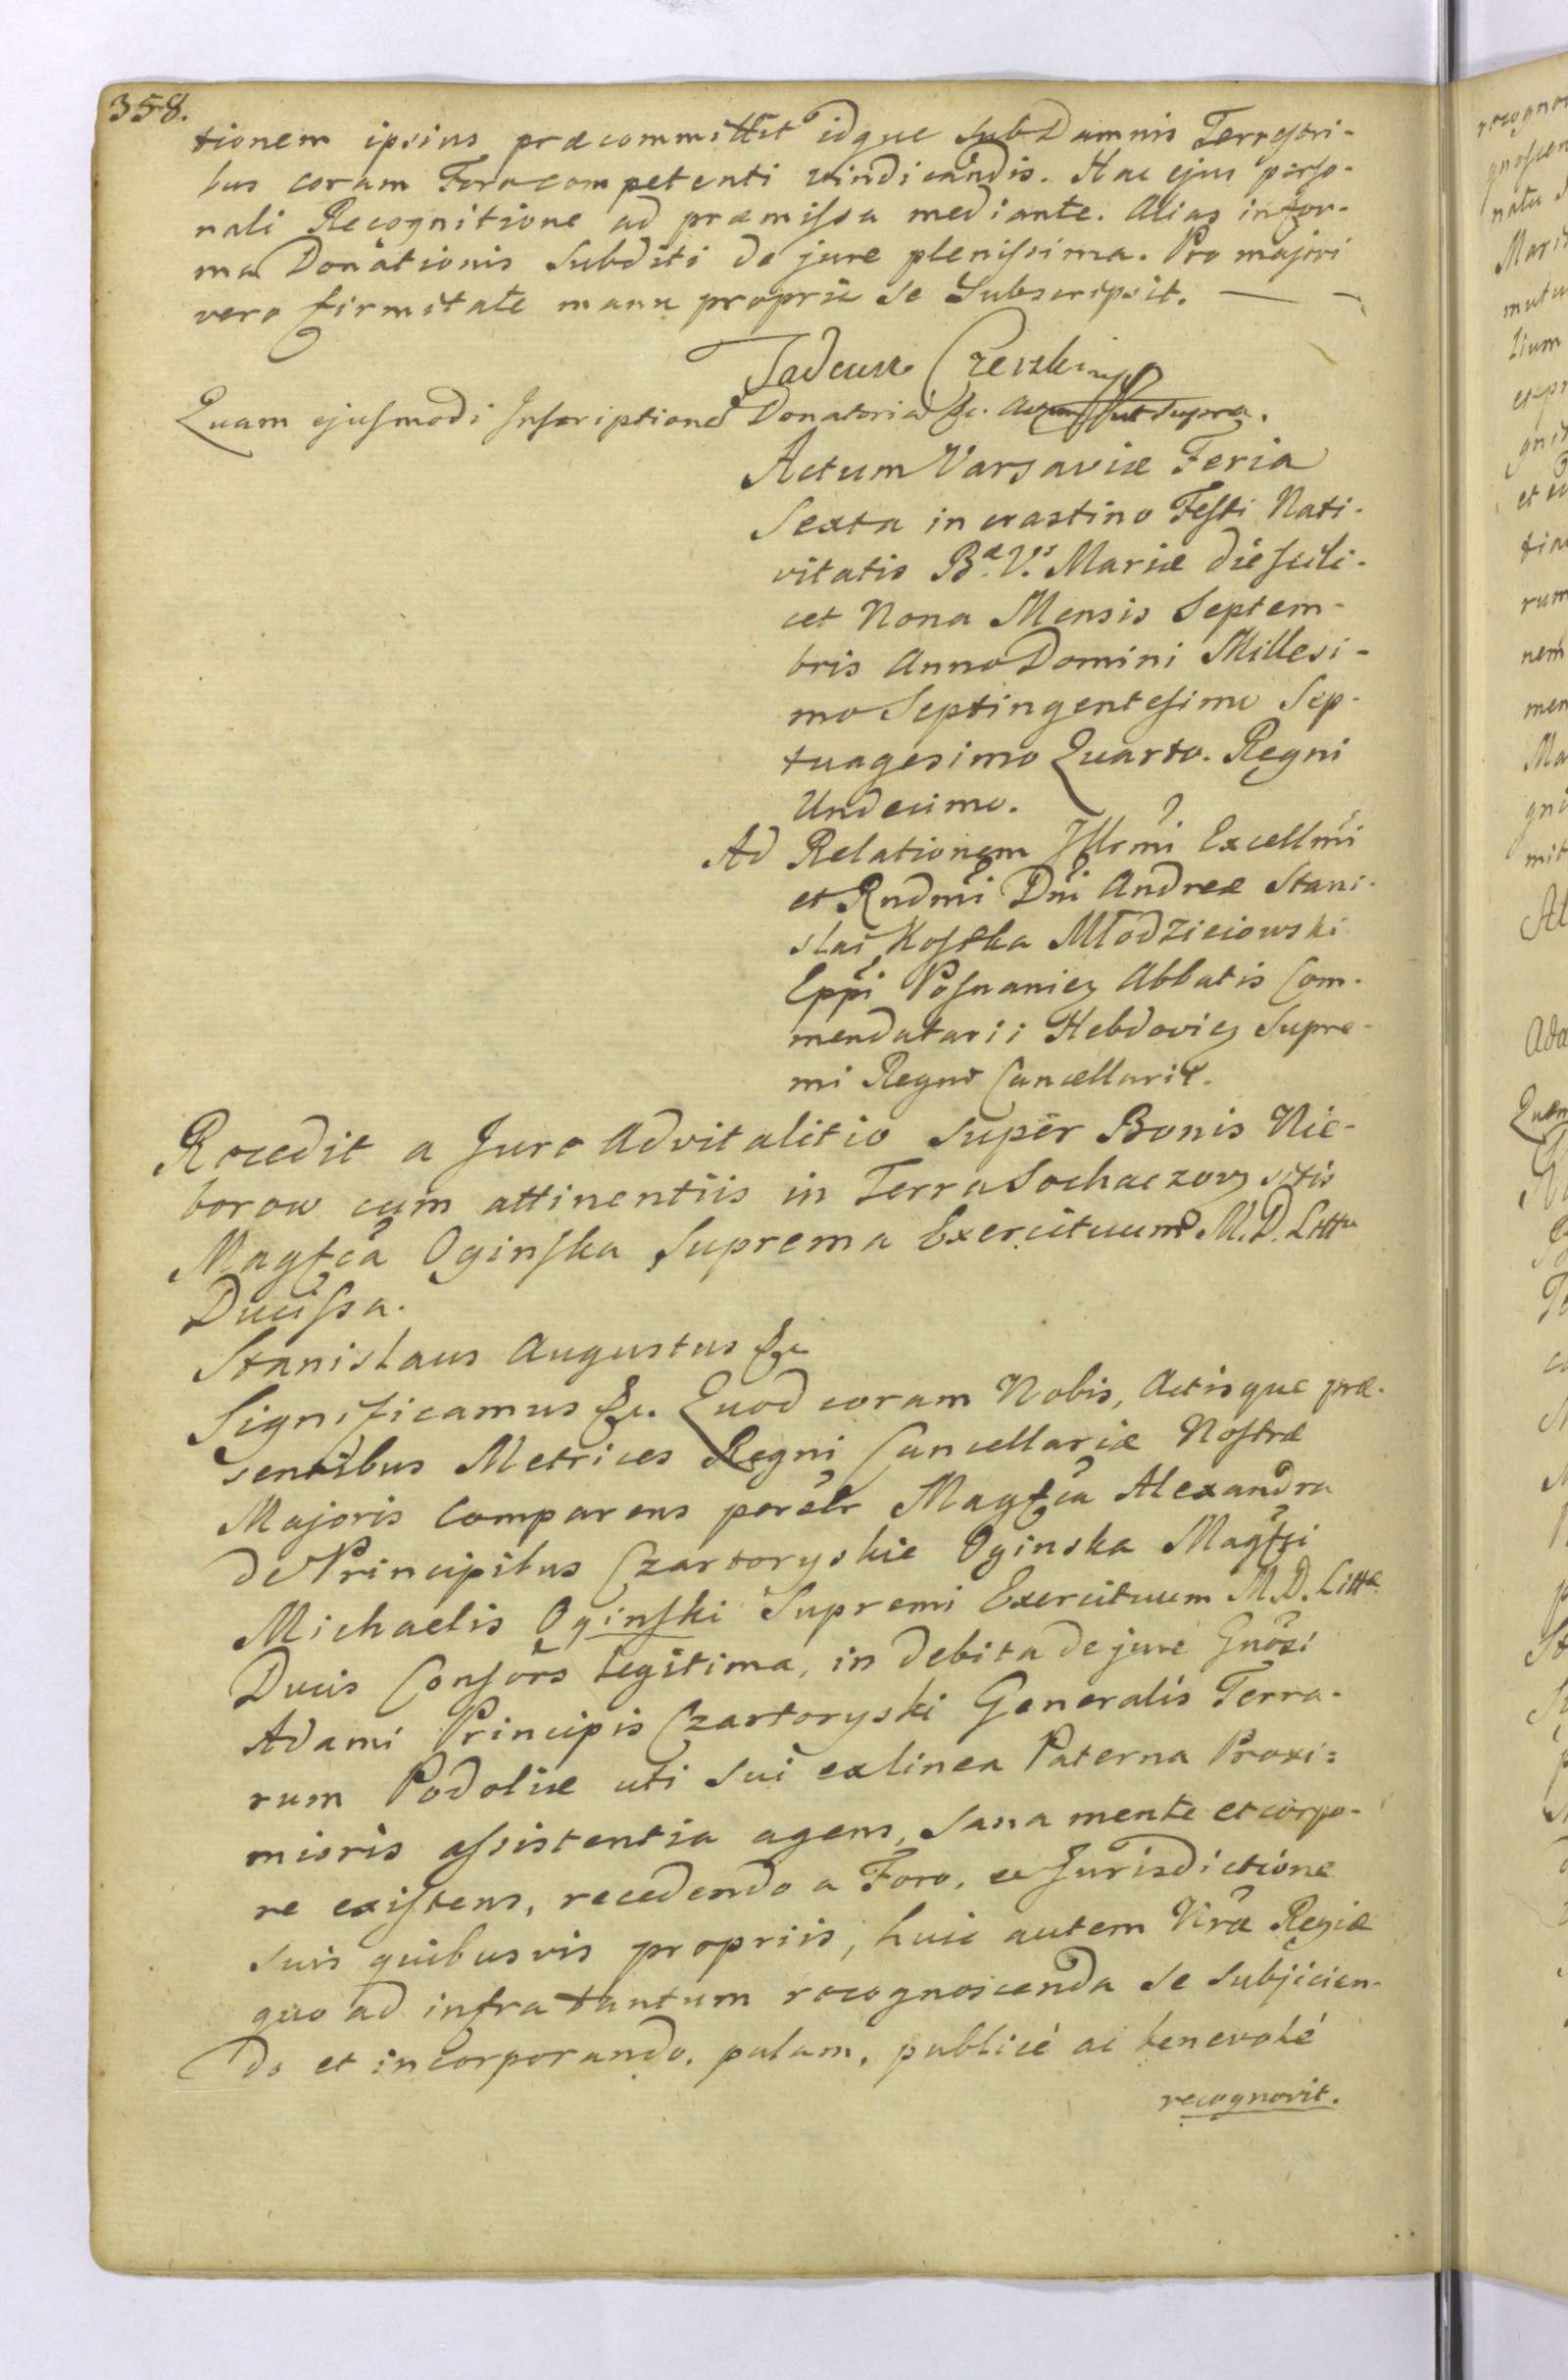 358.
tionem ipsius præcommittit idque sub Damnis Terrestri-
bus coram Foro competenti vindicandis. Hac ejus perso-
nali Recognitione ad præmissa mediante. Alias in for-
ma Donationis Subditi de jure plenissima. Pro majori
vero firmitate manu propriè se Subscripsit. —
Tadeusz
Quam ejusmodi Inscriptione Donatoria &c. Actum ut supra.
Actum Varsaviæ Feria
Sexta in crastino Festi Nati-
vitatis Bæ. V.s Mariæ die scili-
cet Nona Mensis Septem-
bris Anno Domini Millesi-
mo Septingentesimo Sep-
tuagesimo Quarto. Regni
Undecimo.
Ad Relationem Illrmi Excellmi
et Rndmi Dni Andreæ Stani-
slai Kostka Młodzieiowski
Eppi Posnanien Abbatis Com-
mendatarii Hebdovien Supre-
mi Regni Cancellarii.
Recedit a Jure Advitalitio super Bonis Nie-
borow cum attinentiis in Terra Sochaczovien sitis
Magfca Oginska Suprema Exercituum M. D. Litt
Ducissa.
Stanislaus Augustus &c
Significamus &c. Quod coram Nobis, Actisque præ-
sentibus Metrices Regni Cancellariæ Nostræ
Majoris Comparens persلr Magfca Alexandra
de Principibus Czartoryskie Oginska Magfci
Michaelis Oginski Supremi Exercituum M. D. Litt
Ducis Consors legitima, in debita de jure Gnosi
Adami Principis Czartoryski Generalis Terra-
rum Podoliæ uti sui ex linea Paterna Proxi-
mioris assistentia agens, sana mente et corpo-
re existens, recedendo a Foro, et Jurisdictione
suis quibusvis propriis, huic autem Nræ Regiæ
quo ad infra tantum recognoscenda se subjicien-
do et incorporando, palam, publicè ac benevolè
recognovit.